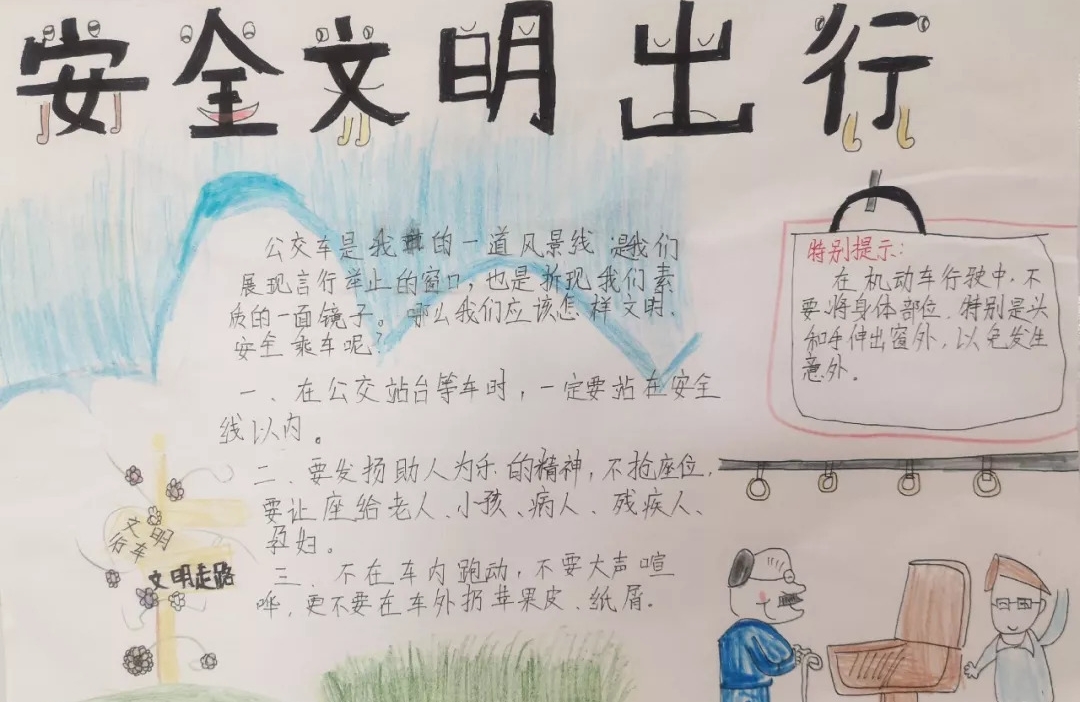 安全文明出行
公交车是我们的一道风景线 是我们
展现言行举止的窗口，也是折现我们素
质的一面镜子。哪么我们应该怎样文明、
安全 乘车呢？
一、在公交站台等车时，一定要站在安全
线以内。
二、要发扬助人为乐的精神，不抢座位，
要让座给老人、小孩、病人、残疾人、
孕妇。
三、不在车内跑动，不要大声喧
哗，更不要在车外扔苹果皮、纸屑。
特别提示：
在机动车行驶中，不
要将身体部位、特别是头
和手伸出窗外，以免发生
意外。
文明
行车
文明走路